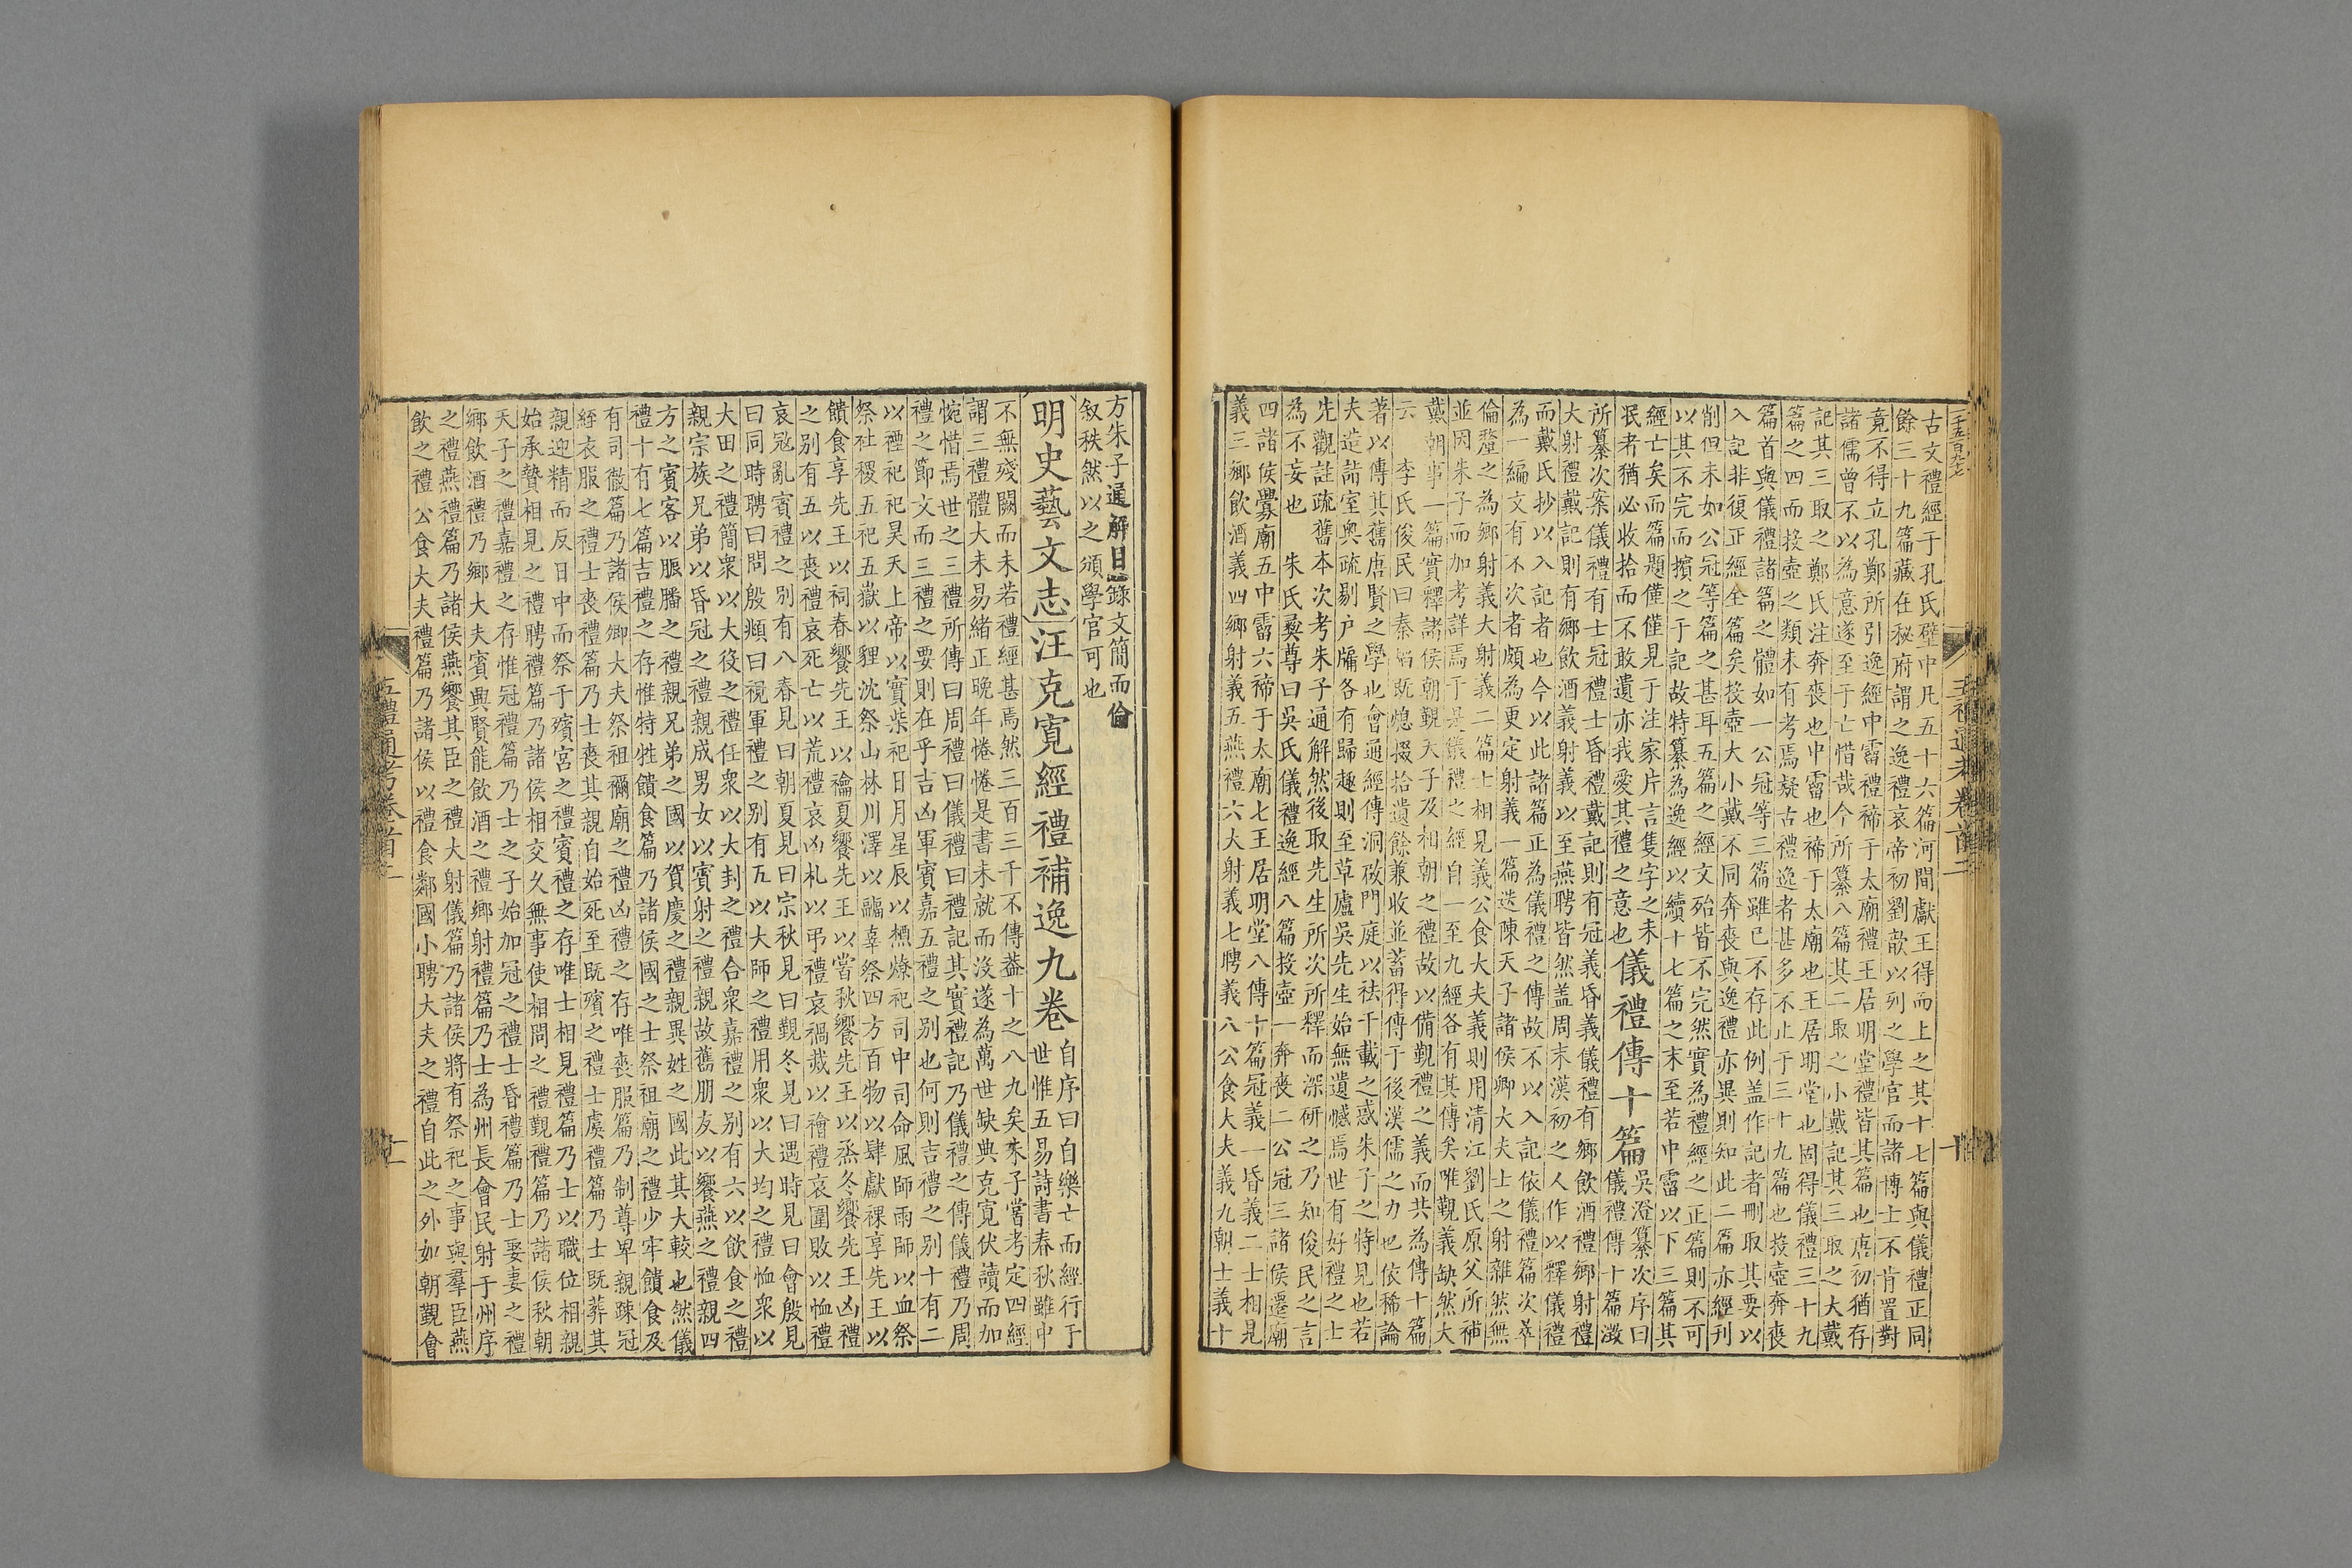 二千五百九十七
五禮通考卷首二
十
古文禮經于孔氏壁中凡五十六篇河間獻王得而上之其十七篇與儀禮正同
餘三十九篇藏在秘府謂之逸禮哀帝初劉歆以列之學官而諸博士不肯置對
竟不得立孔鄭所引逸經中霤禮禘于太廟禮王居明堂禮皆其篇也唐初猶存
諸儒曾不以為意遂至于亡惜哉今所纂八篇其二取之小戴記其三取之大戴
記其三取之鄭氏注奔喪也中霤也禘于太廟也王居明堂也固得儀禮三十九
篇之四而投壺之類未有考焉疑古禮逸者甚多不止于三十九篇也投壺奔喪
篇首與儀禮諸篇之體如一公冠等三篇雖已不存此例盖作記者刪取其要以
入記非復正經全篇矣投壺大小戴不同奔喪與逸禮亦異則知此二篇亦經刊
削但未如公冠等篇之甚耳五篇之經文殆皆不完然實為禮經之正篇則不可
以其不完而擯之于記故特纂為逸經以續十七篇之末至若中霤以下三篇其
經亡矣而篇題僅僅見于注家片言隻字之未
泯者猶必收拾而不敢遺亦我愛其禮之意也
儀禮傳十篇
吳澄纂次序曰
儀禮傳十篇澂
所纂次案儀禮有士冠禮士昏禮戴記則有冠義昏義儀禮有鄉飲酒禮鄉射禮
大射禮戴記則有鄉飲酒義射義以至燕聘皆然盖周末漢初之人作以釋儀禮
而戴氏抄以入記者也今以此諸篇正為儀禮之傳故不以入記依儀禮篇次萃
為一編文有不次者頗為更定射義一篇迭陳天子諸侯卿大夫士之射雜然無
倫釐之為鄉射義大射義二篇士相見義公食大夫義則用清江劉氏原父所補
並因朱子而加考詳焉于是儀禮之經自一至九經各有其傳矣唯覲義缺然大
戴朝事一篇實釋諸侯朝覲天子及相朝之禮故以備覲禮之義而共為傳十篇
云　李氏俊民曰秦焰既熄掇拾遺餘兼收並蓄得傳于後漢儒之力也依稀論
著以傳其舊唐賢之學也會通經傳洞破門庭以祛千載之惑朱子之特見也若
夫造詣室奥疏剔户牖各有歸趣則至草廬吳先生始無遺憾焉世有好禮之士
先觀註疏舊本次考朱子通解然後取先生所次所釋而深研之乃知俊民之言
為不妄也　朱氏彝尊曰吳氏儀禮逸經八篇投壺一奔喪二公冠三諸侯遷廟
四諸侯釁廟五中霤六禘于太廟七王居明堂八傳十篇冠義一昏義二士相見
義三鄉飲酒義四鄉射義五燕禮六大射義七聘義八公食大夫義九朝士義十
方朱子通解目錄文簡而倫
叙秩然以之頒學官可也
明史藝文志汪克寬經禮補逸九卷
自序曰自樂亡而經行于
世惟五易詩書春秋雖中
不無殘闕而未若禮經甚焉然三百三千不傳葢十之八九矣朱子嘗考定四經
謂三禮體大未易緒正晚年惓惓是書未就而沒遂為萬世缺典克寬伏讀而加
惋惜焉世之三禮所傳曰周禮曰儀禮曰禮記其實禮記乃儀禮之傳儀禮乃周
禮之節文而三禮之要則在乎吉凶軍賓嘉五禮之别也何則吉禮之别十有二
以禋祀祀昊天上帝以實柴祀日月星辰以槱燎祀司中司命風師雨師以血祭
祭社稷五祀五嶽以貍沈祭山林川澤以疈辜祭四方百物以肆獻祼享先王以
饋食享先王以祠春饗先王以禴夏饗先王以嘗秋饗先王以烝冬饗先王凶禮
之别有五以喪禮哀死亡以荒禮哀凶札以弔禮哀禍烖以禬禮哀圍敗以恤禮
哀寇亂賓禮之别有八春見曰朝夏見曰宗秋見曰覲冬見曰遇時見曰會殷見
曰同時聘曰問殷頫曰視軍禮之别有五以大師之禮用衆以大均之禮恤衆以
大田之禮簡衆以大役之禮任衆以大封之禮合衆嘉禮之别有六以飲食之禮
親宗族兄弟以昏冠之禮親成男女以賓射之禮親故舊朋友以饗燕之禮親四
方之賓客以脤膰之禮親兄弟之國以賀慶之禮親異姓之國此其大較也然儀
禮十有七篇吉禮之存惟特牲饋食篇乃諸侯國之士祭祖廟之禮少牢饋食及
有司徹篇乃諸侯卿大夫祭祖禰廟之禮凶禮之存唯喪服篇乃制尊卑親疎冠
絰衣服之禮士喪禮篇乃士喪其親自始死至既殯之禮士虞禮篇乃士既葬其
親迎精而反日中而祭于殯宮之禮賓禮之存唯士相見禮篇乃士以職位相親
始承贄相見之禮聘禮篇乃諸侯相交久無事使相問之禮覲禮篇乃諸侯秋朝
天子之禮嘉禮之存惟冠禮篇乃士之子始加冠之禮士昏禮篇乃士娶妻之禮
鄉飲酒禮乃鄉大夫賓興賢能飲酒之禮鄉射禮篇乃士為州長會民射于州序
之禮燕禮篇乃諸侯燕饗其臣之禮大射儀篇乃諸侯將有祭祀之事與羣臣燕
飲之禮公食大夫禮篇乃諸侯以禮食鄰國小聘大夫之禮自此之外如朝覲會
五禮通考卷首二
十一